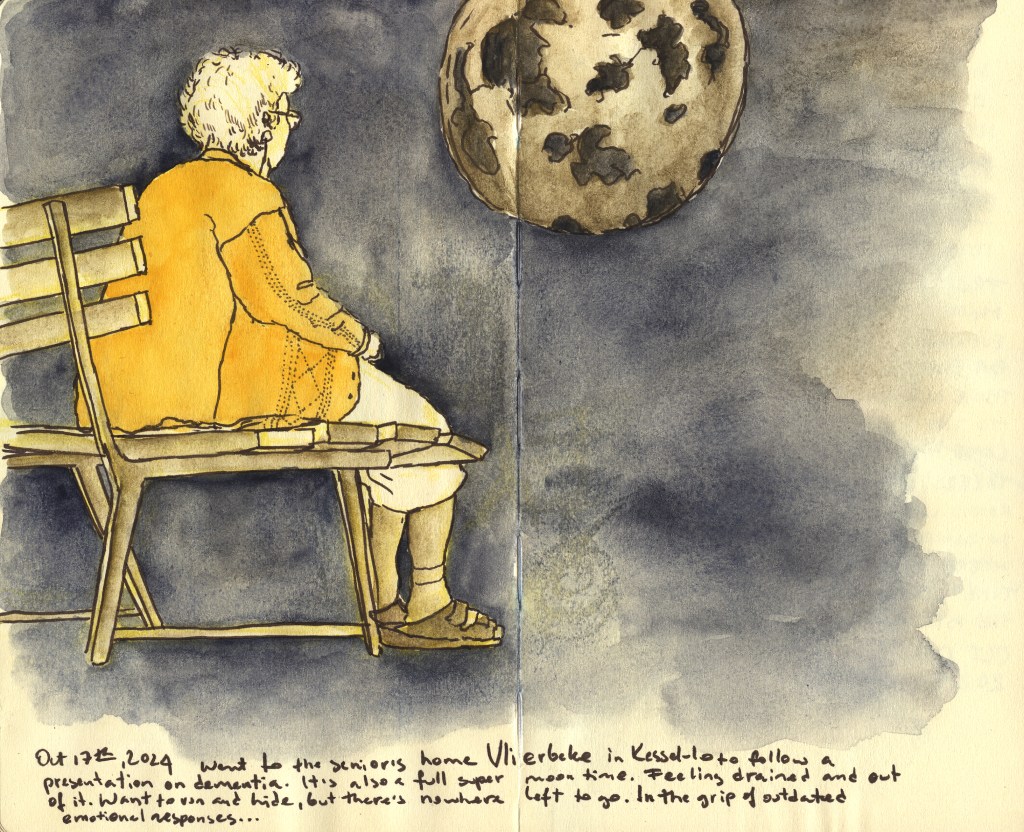 Oct 17th, 2024 Went to the senior's home Vlierbeke in Kessel-lo to follow a
presentation on dementia. It's also a full super moon time. Feeling drained and out
of it. Want to run and hide, but there's nowhere left to go. In the grip of outdated
emotional responses...